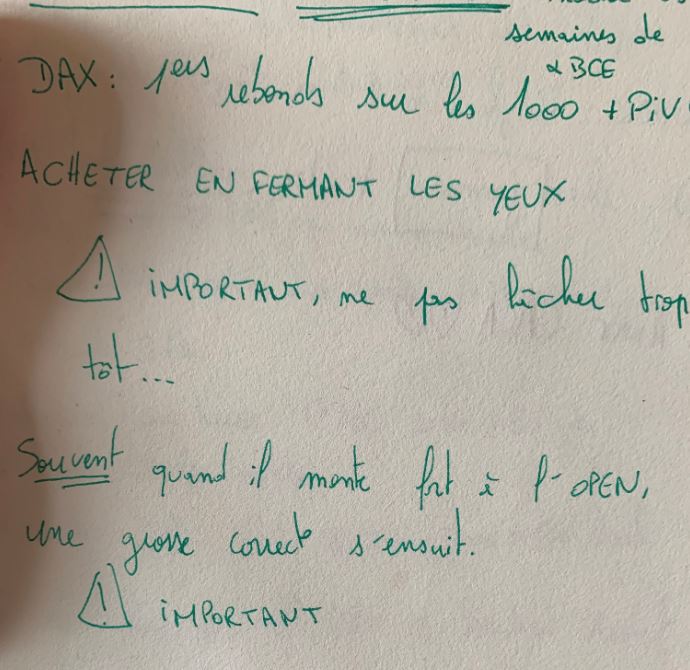 semaines de
α BCE
DAX : 1ers rebonds sur les 1000 + PiV
ACHETER EN FERMANT LES YEUX
⚠ iMPORTANT, ne pas lâcher trop
tôt...
Souvent quand il monte fort à l'OPEN,
une grosse correct° s'ensuit.
⚠ iMPORTANT